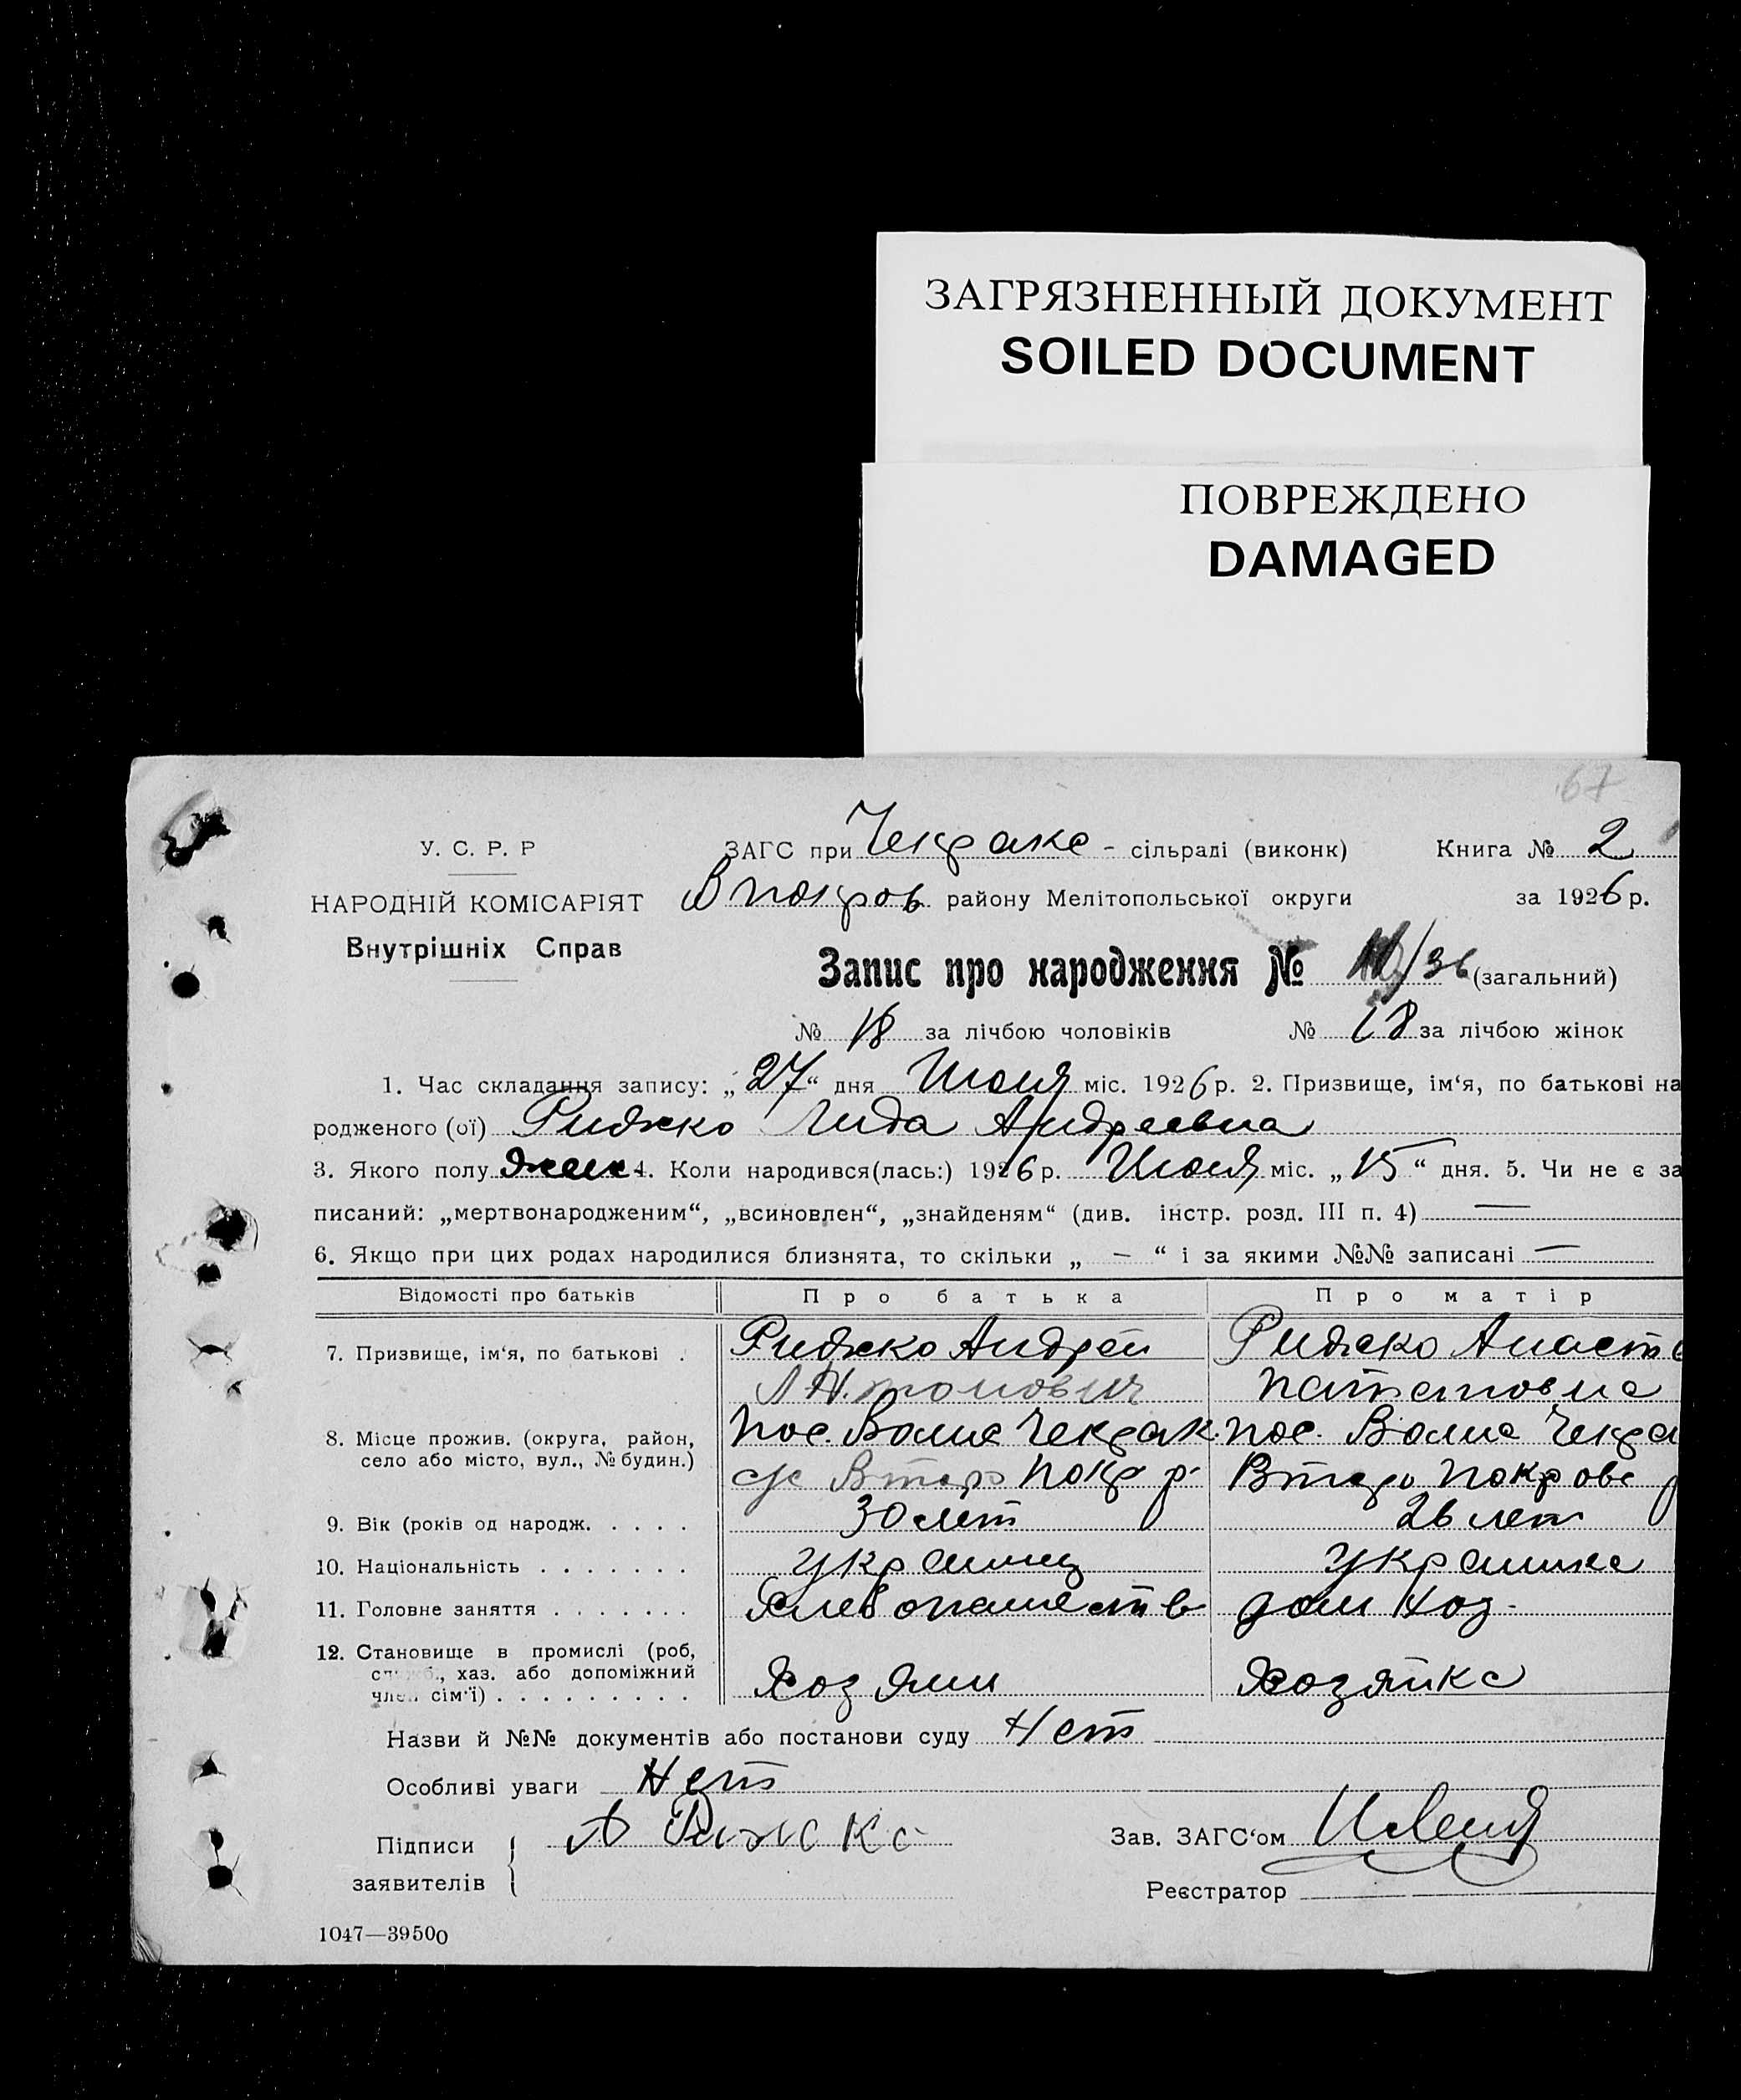 ЗАГРЯЗНЕННЫЙ ДОКУМЕНТ
SOILED DOCUMENT
ПОВРЕЖДЕНО
DAMAGED
67
У. С. Р. Р
ЗАГС при Чекрак - сільраді (виконк)
Книга № 2
НАРОДНІЙ КОМІСАРІЯТ
В покров району Мелітопольської округи
за 1926 р.
Внутрішніх Справ
Запис про народження № /36 (загальний)
№ 18 за лічбою чоловіків № 18 за лічбою жінок
1. Час складання запису: „27“ дня Июля міс. 1926 р. 2. Призвище, ім‘я, по батькові на
родженого (ої) Рижко Лида Андреевна
3. Якого полу жен 4. Коли народився(лась:) 1926 р. Июля міс. „15“ дня. 5. Чи не є за
писаний: „мертвонародженим“, „всиновлен“, „знайденям“ (див. інстр. розд. III п. 4) —
6. Якщо при цих родах народилися близнята, то скільки „ — “ і за якими №№ записані —
Відомості про батьків Про батька Про матір
7. Призвище, ім‘я, по батькові . Рижко Андрей Рижко Анаст
8. Місце прожив. (округа, район, пос. Чекрак пос. Чекра
село або місто, вул., № будин.) Втор покр р. Втор покров
9. Вік (років од народж. . . . . 30 лет 26 лет
10. Національність . . . . . . . украинц украинка
11. Головне заняття . . . . . . . хлебопашеств дом хоз.
12. Становище в промислі (роб,
служб., хаз. або допоміжний хозяин хозяйка
член сім‘ї) . . . . . . . . .
Назви й №№ документів або постанови суду Нет
Особливі уваги Нет
Підписи А Рижко Зав. ЗАГС‘ом
заявителів Реєстратор
1047—39500